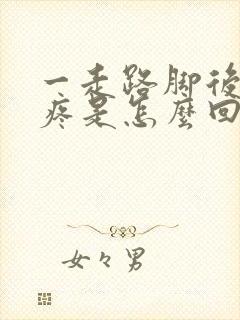 一走路脚後
疼是怎麼回
女々男